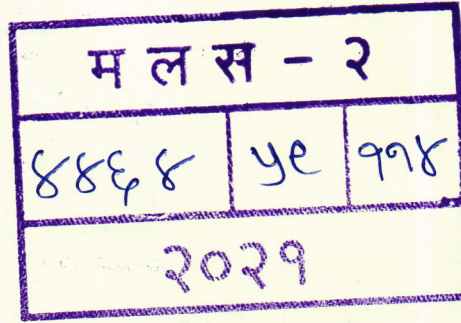 म ल स - २
४४६४ ५९ ११४
२०२१